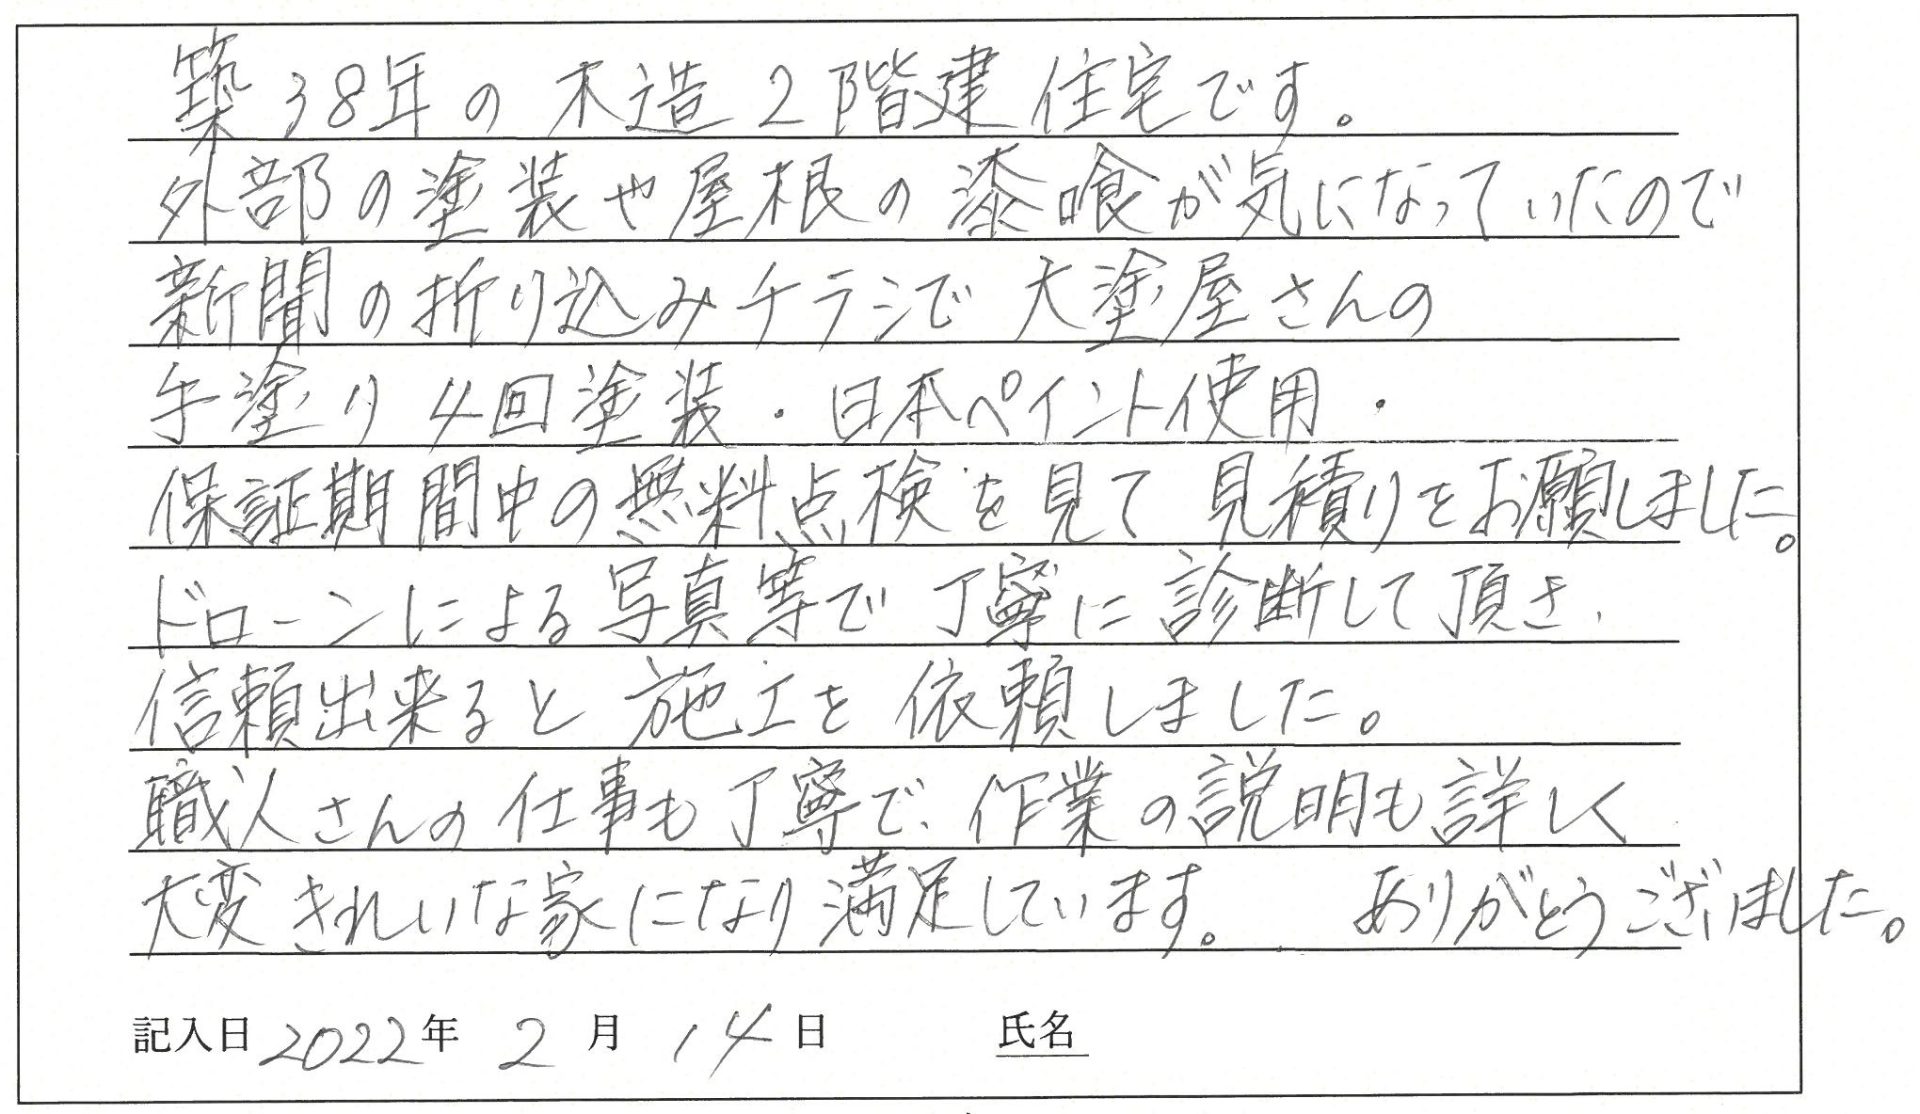 築38年の木造2階建住宅です。
外部の塗装や屋根の漆喰が気になっていたので
新聞の折り込みチラシで大塗屋さんの
手塗り4回塗装・日本ペイント使用・
保証期間中の無料点検を見て見積りをお願しました。
ドローンによる写真等で丁寧に診断して頂き、
信頼出来ると施工を依頼しました。
職人さんの仕事も丁寧で、作業の説明も詳しく
大変きれいな家になり満足しています。 ありがとうございました。
記入日 2022年 2月 14日 氏名